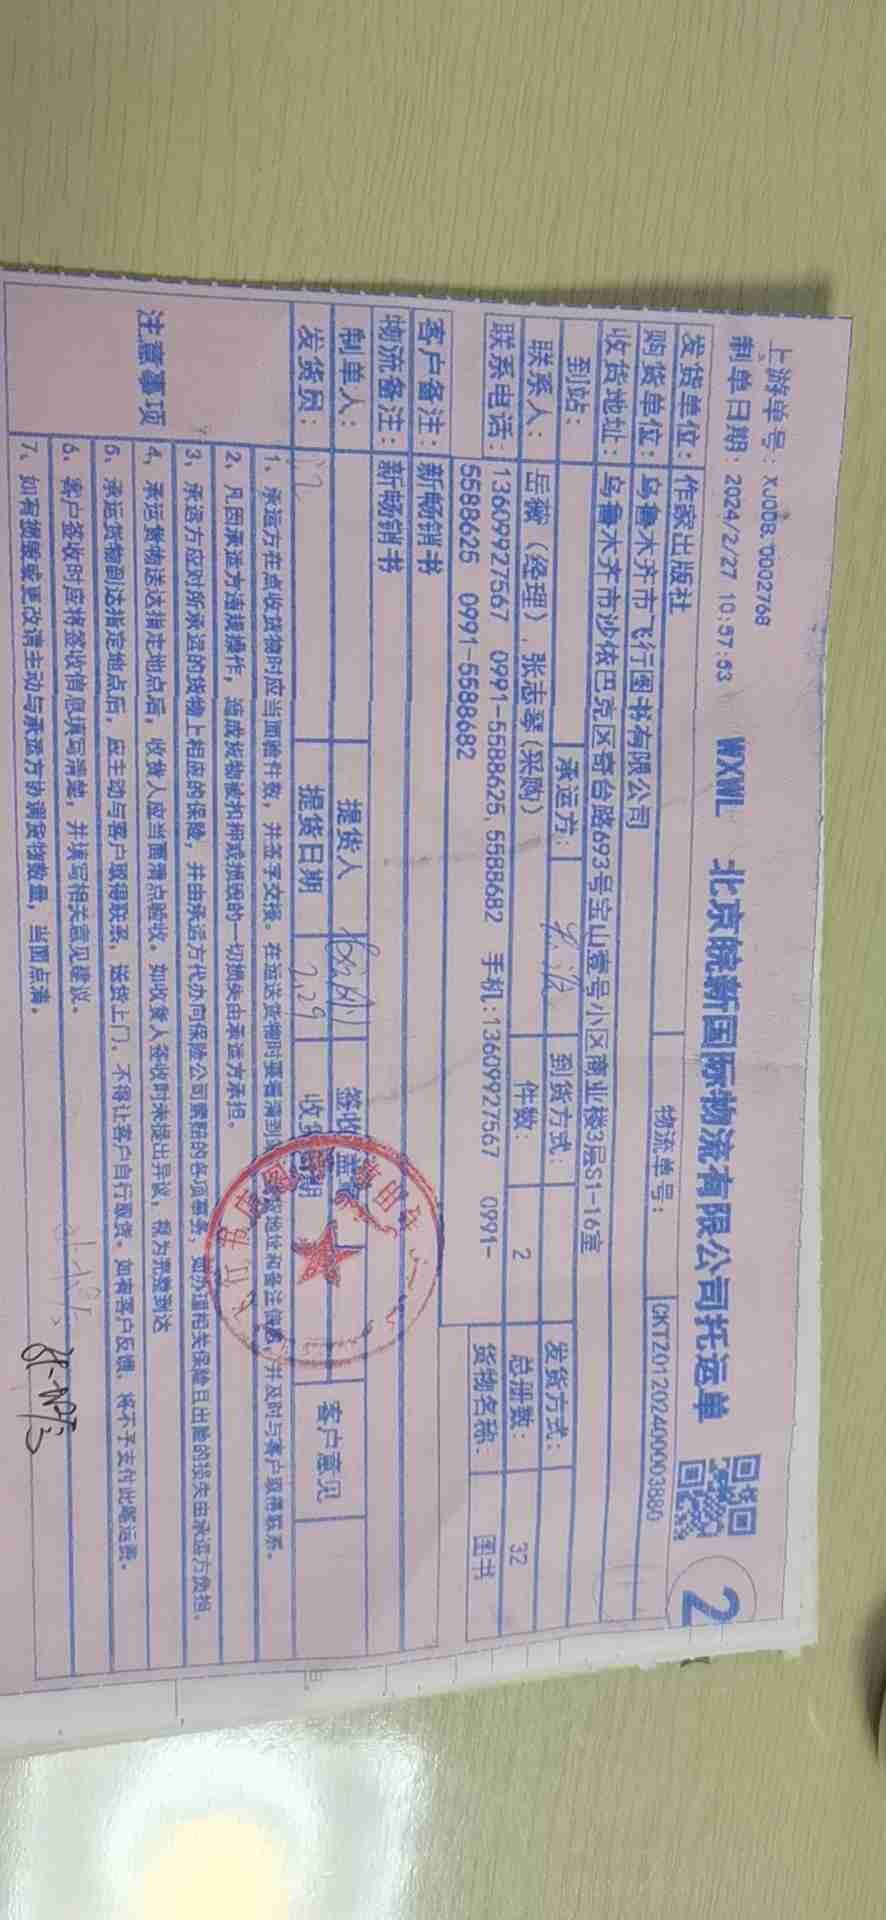 上游单号: XJ008.0002768
制单日期: 2024/2/27 10:57:53 WXWL 北京皖新国际物流有限公司托运单 2
发货单位: 作家出版社 物流单号: CKTZ0120240003880
购货单位: 乌鲁木齐市飞行图书有限公司
收货地址: 乌鲁木齐市沙依巴克区奇台路693号宝山壹号小区商业楼3层S1-16室
到站: 承运方: 到货方式: 发货方式:
联系人: 岳薇（经理），张志琴(采购) 件数: 2 总册数: 32
联系电话: 13609927567 0991-5588625,5588682 手机:13609927567 0991-5588625 0991-5588682 货物名称: 图书
客户备注: 新畅销书
物流备注: 新畅销书
制单人: 提货人 签收 盖章 客户意见
发货员: 提货日期 2.29 收货日期
注意事项
1、承运方在点收货物时应当面验件数，并签字交接。在运送货物时要看清到 地址和备注信息，并及时与客户取得联系。
2、凡因承运方违规操作，造成货物被扣押或损毁的一切损失由承运方承担。
3、承运方应对所承运的货物上相应的保险，并由承运方代办向保险公司索赔的各项事务，如办理相关保险且出险的损失由承运方负担。
4、承运货物送达指定地点后，收货人应当面清点验收。如收货人签收时未提出异议，视为完整到达
5、承运货物到达指定地点后，应主动与客户取得联系，送货上门，不得让客户自行取货。如有客户反馈，将不予支付此笔运费。
6、客户签收时应将签收信息填写清楚，并填写相关意见建议。
7、如有损毁或更改请主动与承运方协调货物数量，当面点清。